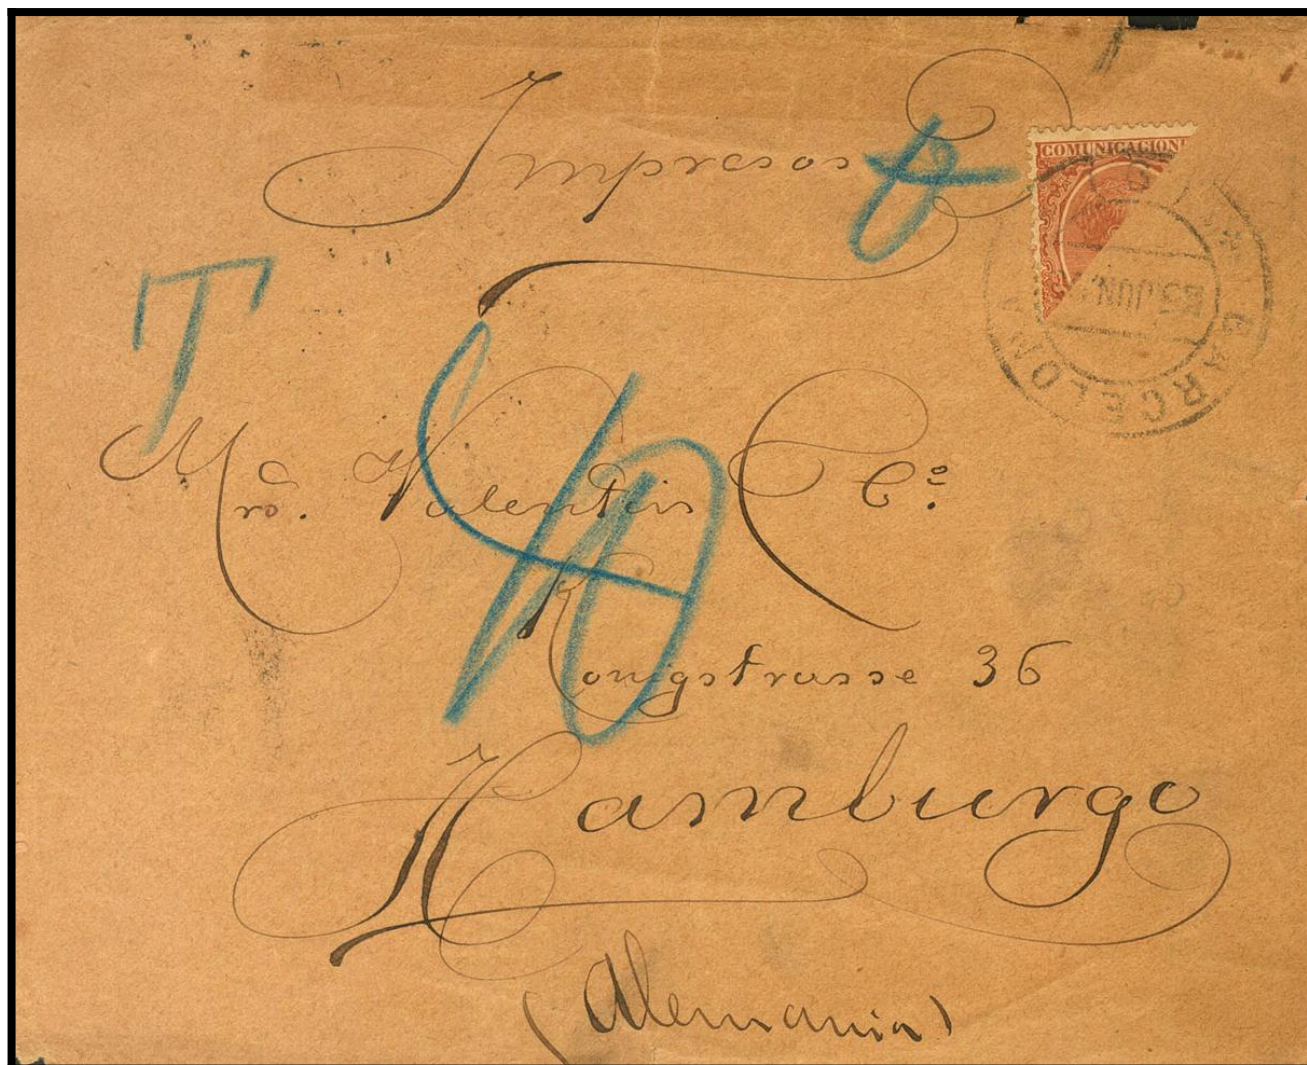 Impresos
COMUNICACION
BARCELONA
JUN
T
40
Valentin Cº
Konigstrasse 36
Hamburgo
(Alemania)